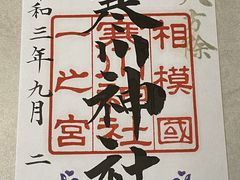 八方除
相模國
寒川神社
一之宮
寒川神社
和三年九月二